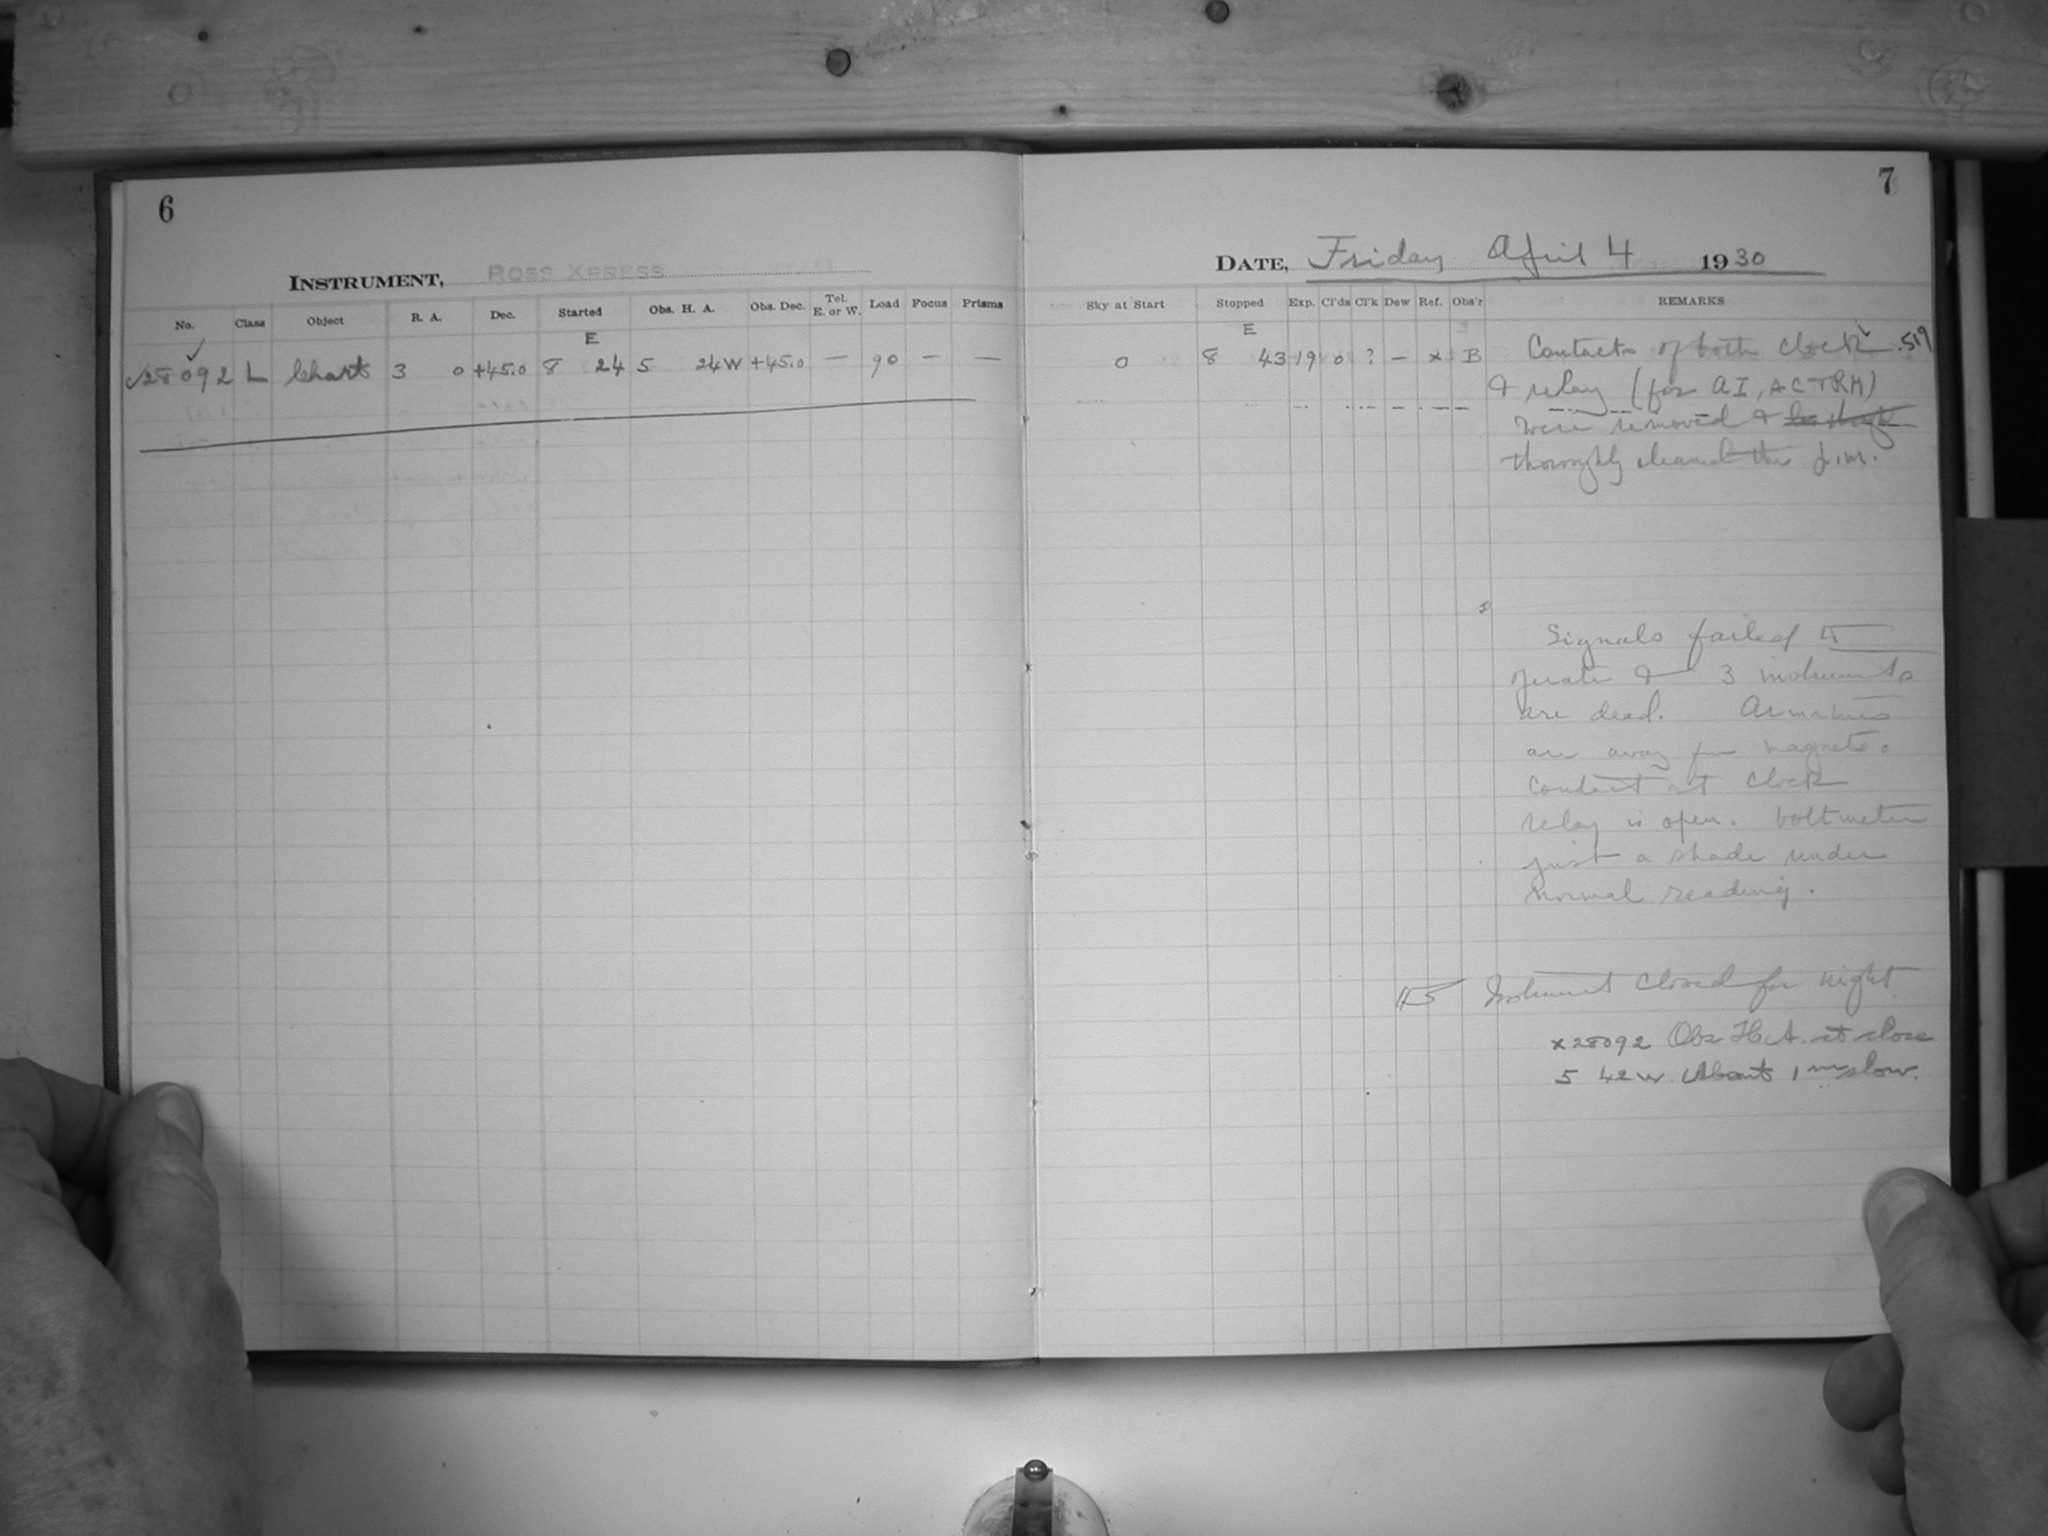 6
INSTRUMENT, ROSS XPRESS
No. Class Object R. A. Dec. Started Obs. H. A. Obs. Dec. Tel. E. or W. Load Focus Prisms
E
28092 L Chart 3 0 +45.0 8 24 5 24W +45.0 — 90 — —
7
DATE, Friday April 4 1930
Sky at Start Stopped Exp. Cl'ds Cl'k Dew Ref. Obs'r REMARKS
E
0 8 43 19 0 ? — x B Contacts of both clock .519
& relay (for AI, AC + RH)
were removed &
thoroughly cleaned this p.m.
Signals failed to
operate & 3 instruments
are dead. Armatures
are away from magnets.
Contact at clock
relay is open. Voltmeter
just a shade under
normal reading.
Instrument closed for night
x 28092 Obs H.A. at close
5 42 W. About 1m slow.